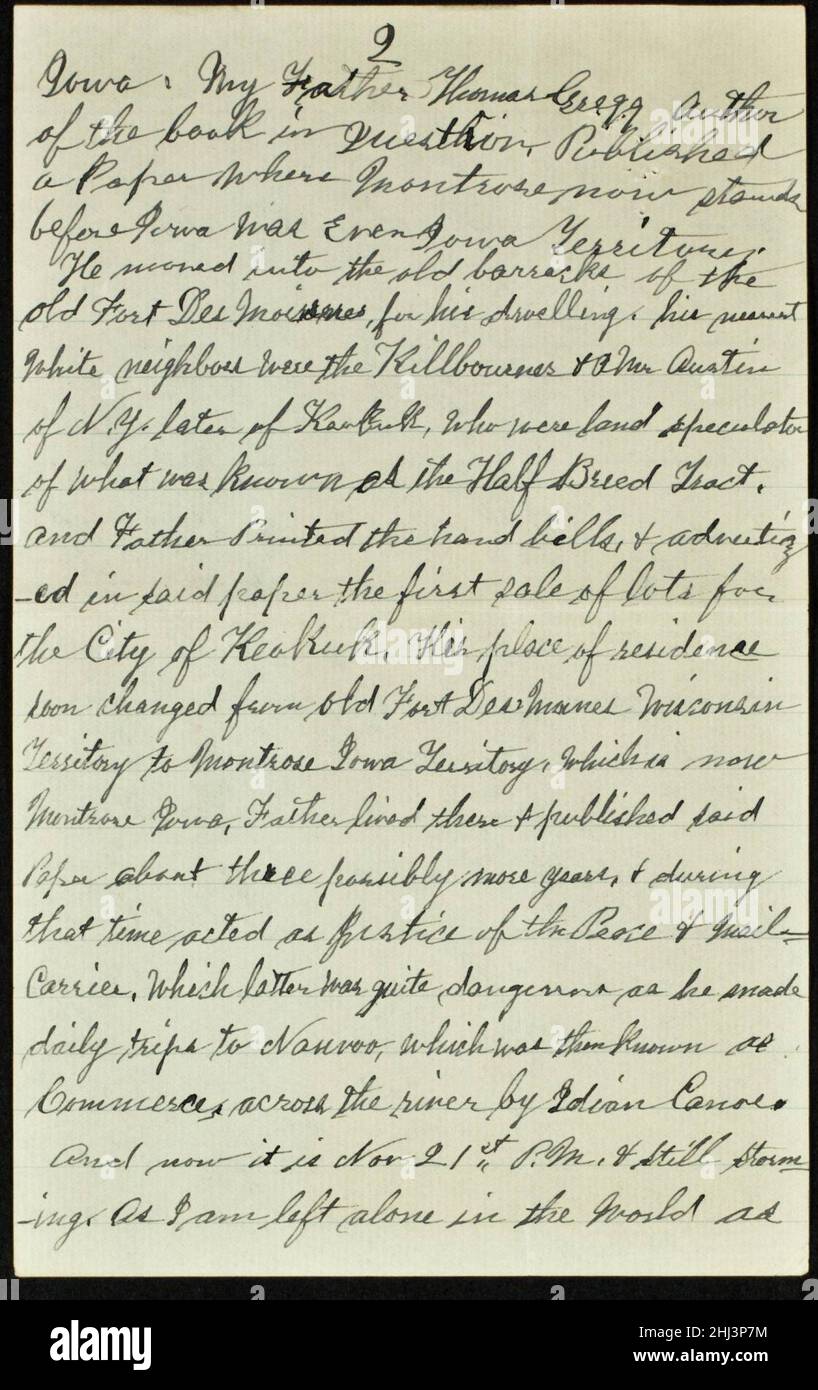 2
Iowa. My Father Thomas Gregg author
of the book in Question, Published
a Paper where Montrose now stands
before Iowa was Even Iowa Territory.
He moved into the old barracks of the
old Fort Des Moisnes, for his dwelling. his nearest
White neighbors were the Killbournes & a Mr Austin
of N.Y. later of Keokuk, who were land speculator
of what was known as the Half Breed Tract.
and Father Printed the hand bills, & advertiz
-ed in said paper the first sale of lots for
the City of Keokuk. His place of residence
soon changed from old Fort Des Moines Wisconsin
Territory to Montrose Iowa Territory, which is now
Montrose Iowa, Father lived there & published said
Paper about three possibly more years, & during
that time acted as Justice of the Peace & Mail-
Carrier, Which latter was quite dangerous as he made
daily trips to Nauvoo, which was then known as
Commerce, across the river by Idian Canoe.
And now it is Nov 21st P.M. & still storm
-ing. As I am left alone in the World as
alamy
Image ID: 2HJ3P7M
www.alamy.com